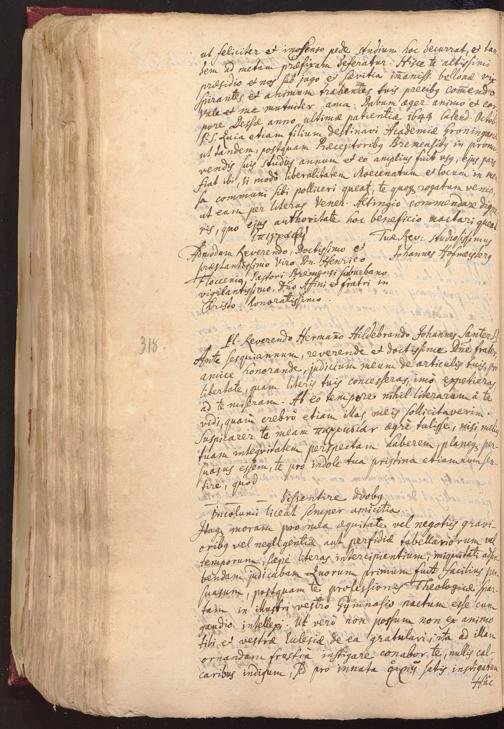 ut feliciter et inoffenso pede studium hoc decurrat, et tan
dem ad metam præfixam deferatur. Hisce te altissimi
præsidio et nos sub jugo et sævitia immanissi bellonæ su
spirantes et animam trahentes tuis precibg comendo
vale et me mutuiter ama. Dabam æger animo et cor
pore Desdæ anno ultimæ patientiæ 1644
P.S. Quia etiam filium destinavi Academiæ Groningan
ut tandem, postquam Præceptoribg Bremensibg in promo
vendis suis studiis annum et eo amplius usg, ejus pars
fiat ibi, si modo liberalitatem Mæcenatum et locum in me
sa communi sibi polliceri queat, te quoq rogatum venio
ut eam per literas Vener. Altingio commendare digne
ris, quo ejus authoritate hoc beneficio mactari queat
Tuæ Rev. studiosissimus
Admodum Reverendo, Doctissimo et Johannes Hofmeisterg
præstantissimo Viro Dn. Henrico
Flocenio, Pastori Bremensi suburbano
vigilantissimo, Dno Affini et fratri in
Christo honoratissimo
318. Pl. Reverendo Hermanno Hildebrando Johannes Santer
Ante sesquiannum, reverende et doctissime Dne frater
amice honorande, judicium meum de articulis tuis, pro
libertate, quam literis tuis concesseras, imo expetieras
ad te miseram. At eo tempore nihil literarum à te
vidi, quam crebro etiam illas meis sollicitaverim.
Suspicarer te meam παρρησίαν ægrè tulisse, nisi melius
tuam integritatem perspectam haberem, planeq per-
suasus essem, te pro indole tua pristina etiamnum sen
tire, quod
_ _ dissentire duobg
Incolumi liceat semper amicitia.
Hanc moram pro mea æquitate, vel negotiis gravi
oribg vel negligentiæ aut perfidiæ tabellariorum vel
temporum, sæpe literas intercipientium, iniquitati adscri
bendam judicabam. Quorum primum fuit facilius per
suasum, postquam te professionis Theologicæ spar
tam in Illustri vestro Gymnasio nactum esse cum
gaudio intellexi. Ut vero non possum non ex animo
tibi et vestræ Ecclesiæ de ea gratulari, ita ad illam
ornandam frustra instigare conabor te, nullis cal-
caribus indigum, sed pro innata satis instigatum
Hæc